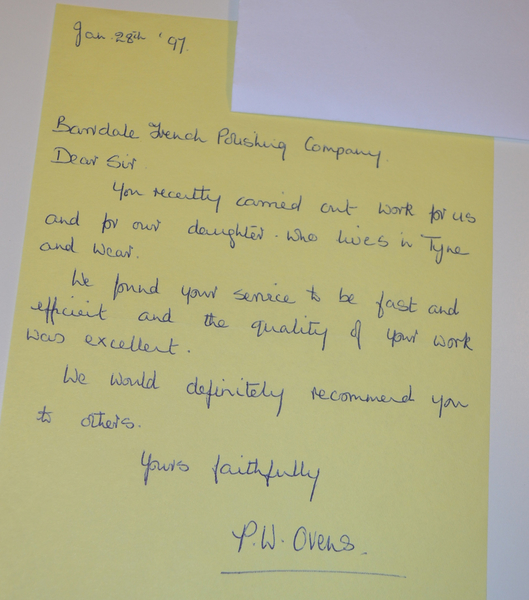 Jan 28th '97
Barrdale French Polishing Company.
Dear Sir.
You recently carried out work for us
and for our daughter. who lives in Tyne
and Wear.
We found your service to be fast and
efficient and the quality of your work
was excellent.
We would definitely recommend you
to others.
Yours faithfully
P.W. Ovens.